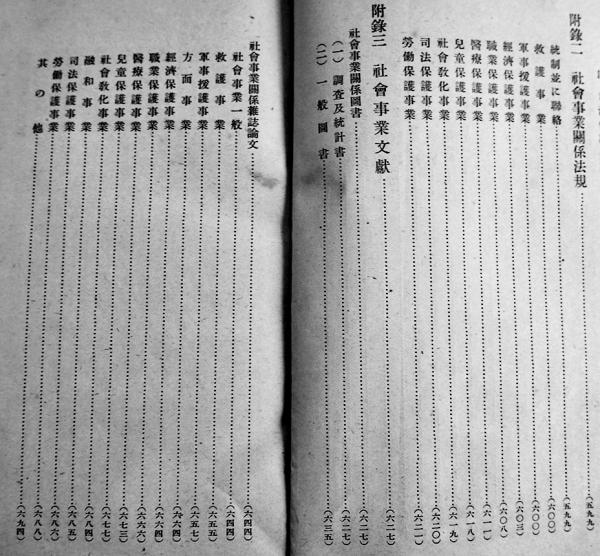 附錄二 社會事業關係法規……(五九九)
統制並に聯絡……(五九九)
救護事業……(六〇〇)
軍事援護事業……(六〇〇)
經濟保護事業……(六〇三)
職業保護事業……(六〇八)
醫療保護事業……(六一一)
兒童保護事業……(六一八)
社會敎化事業……(六一九)
司法保護事業……(六二〇)
勞働保護事業……(六二一)
附錄三 社會事業文獻……(六二七)
社會事業關係圖書……(六二七)
(一) 調査及統計書……(六二七)
(二) 一般圖書……(六三五)
社會事業關係雜誌論文……(六四四)
社會事業一般……(六四四)
救護事業……(六五七)
軍事援護事業……(六五七)
方面事業……(六六四)
經濟保護事業……(六六四)
職業保護事業……(六六六)
醫療保護事業……(六七三)
兒童保護事業……(六七七)
社會敎化事業……(六八四)
融和事業……(六八五)
司法保護事業……(六八六)
勞働保護事業……(六八八)
其の他……(六九四)